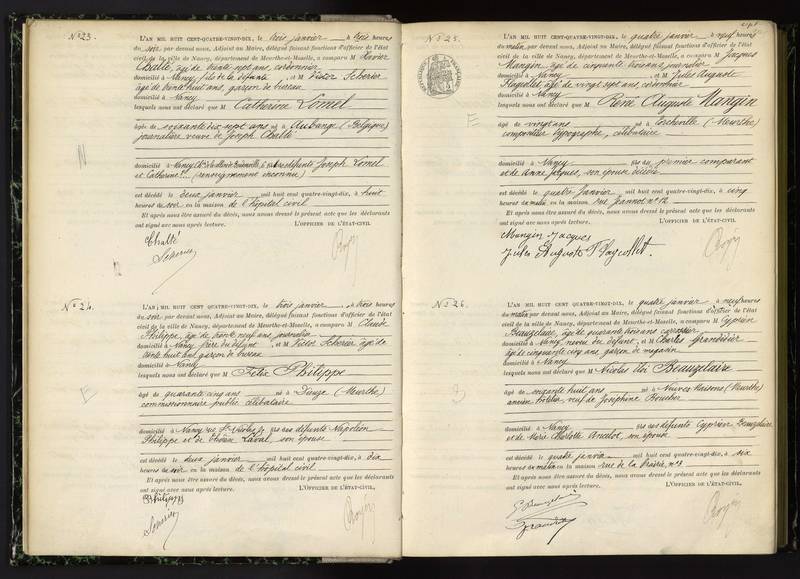 N° 23.
L'AN MIL HUIT CENT QUATRE-VINGT-DIX, le trois janvier à trois heures
du soir, par devant nous, Adjoint au Maire, délégué faisant fonctions d'officier de l'état
civil de la ville de Nancy, département de Meurthe-et-Moselle, a comparu M Xavier
Chatté, âgé de trente-sept ans, cordonnier
domicilié à Nancy, fils de la défunte, et M Victor Scherier
âgé de trente huit ans, garçon de bureau
domicilié à Nancy
lesquels nous ont déclaré que M Catherine Lomel
âgée de soixante dix-sept ans née à Aubange (Belgique)
journalière veuve de Joseph Chatté
domicilié à Nancy des défunts Joph Lomel
et Catherine?... (renseignement inconnu)
est décédé le deux janvier mil huit cent quatre-vingt-dix, à huit
heures du soir en la maison de l'hôpital civil
Et après nous être assuré du décès, nous avons dressé le présent acte que les déclarants
ont signé avec nous après lecture. L'OFFICIER DE L'ÉTAT-CIVIL.
Chatté
N° 24.
L'AN MIL HUIT CENT QUATRE-VINGT-DIX, le trois janvier, à trois heures
du soir, par devant nous, Adjoint au Maire, délégué faisant fonctions d'officier de l'état
civil de la ville de Nancy, département de Meurthe-et-Moselle, a comparu M Claude
Philippe, âgé de trente neuf ans, journalier
domicilié à Nancy frère du défunt, et M Victor Scherier, âgé de
trente huit ans, garçon de bureau
domicilié à Nancy
lesquels nous ont déclaré que M Félix Philippe
âgé de quarante cinq ans né à Dieuze (Meurthe)
commissionnaire public célibataire
domicilié à Nancy rue St Nicolas des défunts Napoléon
Philippe et de Laval, son épouse
est décédé le deux janvier mil huit cent quatre-vingt-dix, à dix
heures du soir en la maison de l'hôpital civil
Et après nous être assuré du décès, nous avons dressé le présent acte que les déclarants
ont signé avec nous après lecture. L'OFFICIER DE L'ÉTAT-CIVIL,
Philippe
N° 25.
L'AN MIL HUIT CENT QUATRE-VINGT-DIX, le quatre janvier, à neuf heures
du matin, par devant nous, Adjoint au Maire, délégué faisant fonctions d'officier de l'état
civil de la ville de Nancy, département de Meurthe-et-Moselle, a comparu M Jacques
Mangin, âgé de cinquante trois ans, journalier
domicilié à Nancy, et M Jules Auguste
Flageollet, âgé de vingt sept ans, cordonnier
domicilié à Nancy
lesquels nous ont déclaré que M René Auguste Mangin
âgé de vingt ans né à (Meurthe)
compositeur typographe, célibataire
domicilié à Nancy fils du premier comparant
et de Anne Jacques, son épouse
est décédé le quatre janvier, mil huit cent quatre-vingt-dix, à cinq
heures du matin en la maison rue Jeannot n° 12
Et après nous être assuré du décès, nous avons dressé le présent acte que les déclarants
ont signé avec nous après lecture. L'OFFICIER DE L'ÉTAT-CIVIL.
Mangin Jacques
Jules Auguste Flageollet.
N° 26.
L'AN MIL HUIT CENT QUATRE-VINGT-DIX, le quatre janvier, à neuf heures
du matin, par devant nous, Adjoint au Maire, délégué faisant fonctions d'officier de l'état
civil de la ville de Nancy, département de Meurthe-et-Moselle, a comparu M Cyprien
Beauzelaire, âgé de quarante trois ans
domicilié à Nancy neveu du défunt, et M Charles Grandidier
âgé de cinquante cinq ans, garçon de magasin
domicilié à Nancy
lesquels nous ont déclaré que M Nicolas Eloi Beauzelaire
âgé de soixante huit ans né à Neuves Maisons (Meurthe)
ancien veuf de Joséphine Boucher
domicilié à Nancy fils des défunts Cyprien Beauzelaire
et de Marie Charlotte Ancelot, son épouse
est décédé le quatre janvier, mil huit cent quatre-vingt-dix, à six
heures du matin en la maison rue de la Prairie n° 19
Et après nous être assuré du décès, nous avons dressé le présent acte que les déclarants
ont signé avec nous après lecture. L'OFFICIER DE L'ÉTAT-CIVIL,